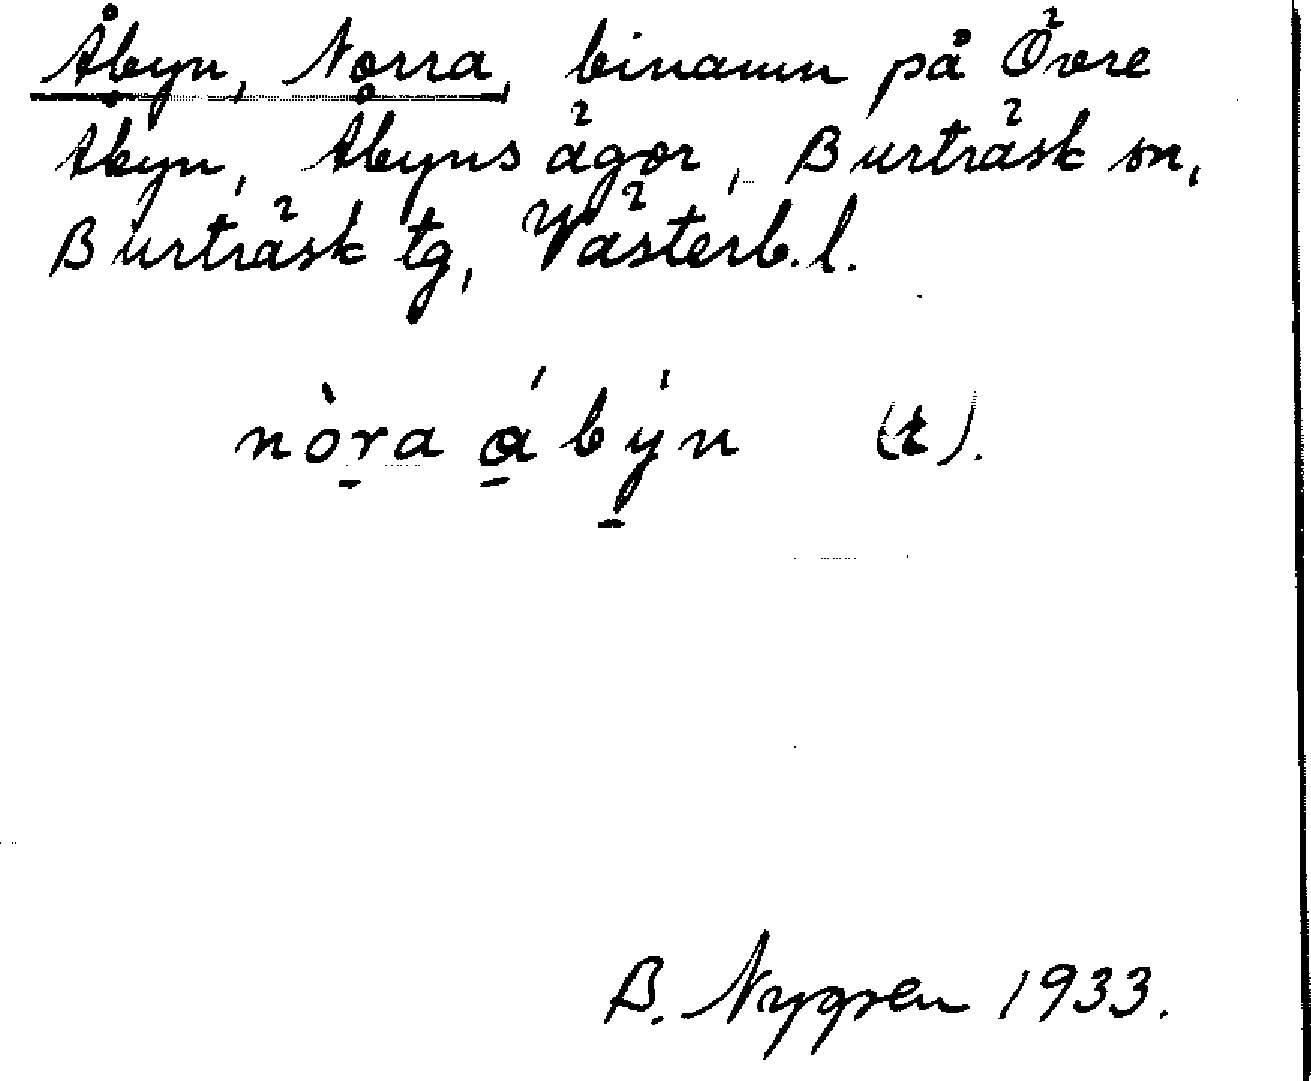 Åbyn, Norra, binamn på Övre
Åbyn, Åbyns ägor, Burträsk sn,
Burträsk tg, Västerb. l.
nòra ábýn (t).
B. Nygren 1933.